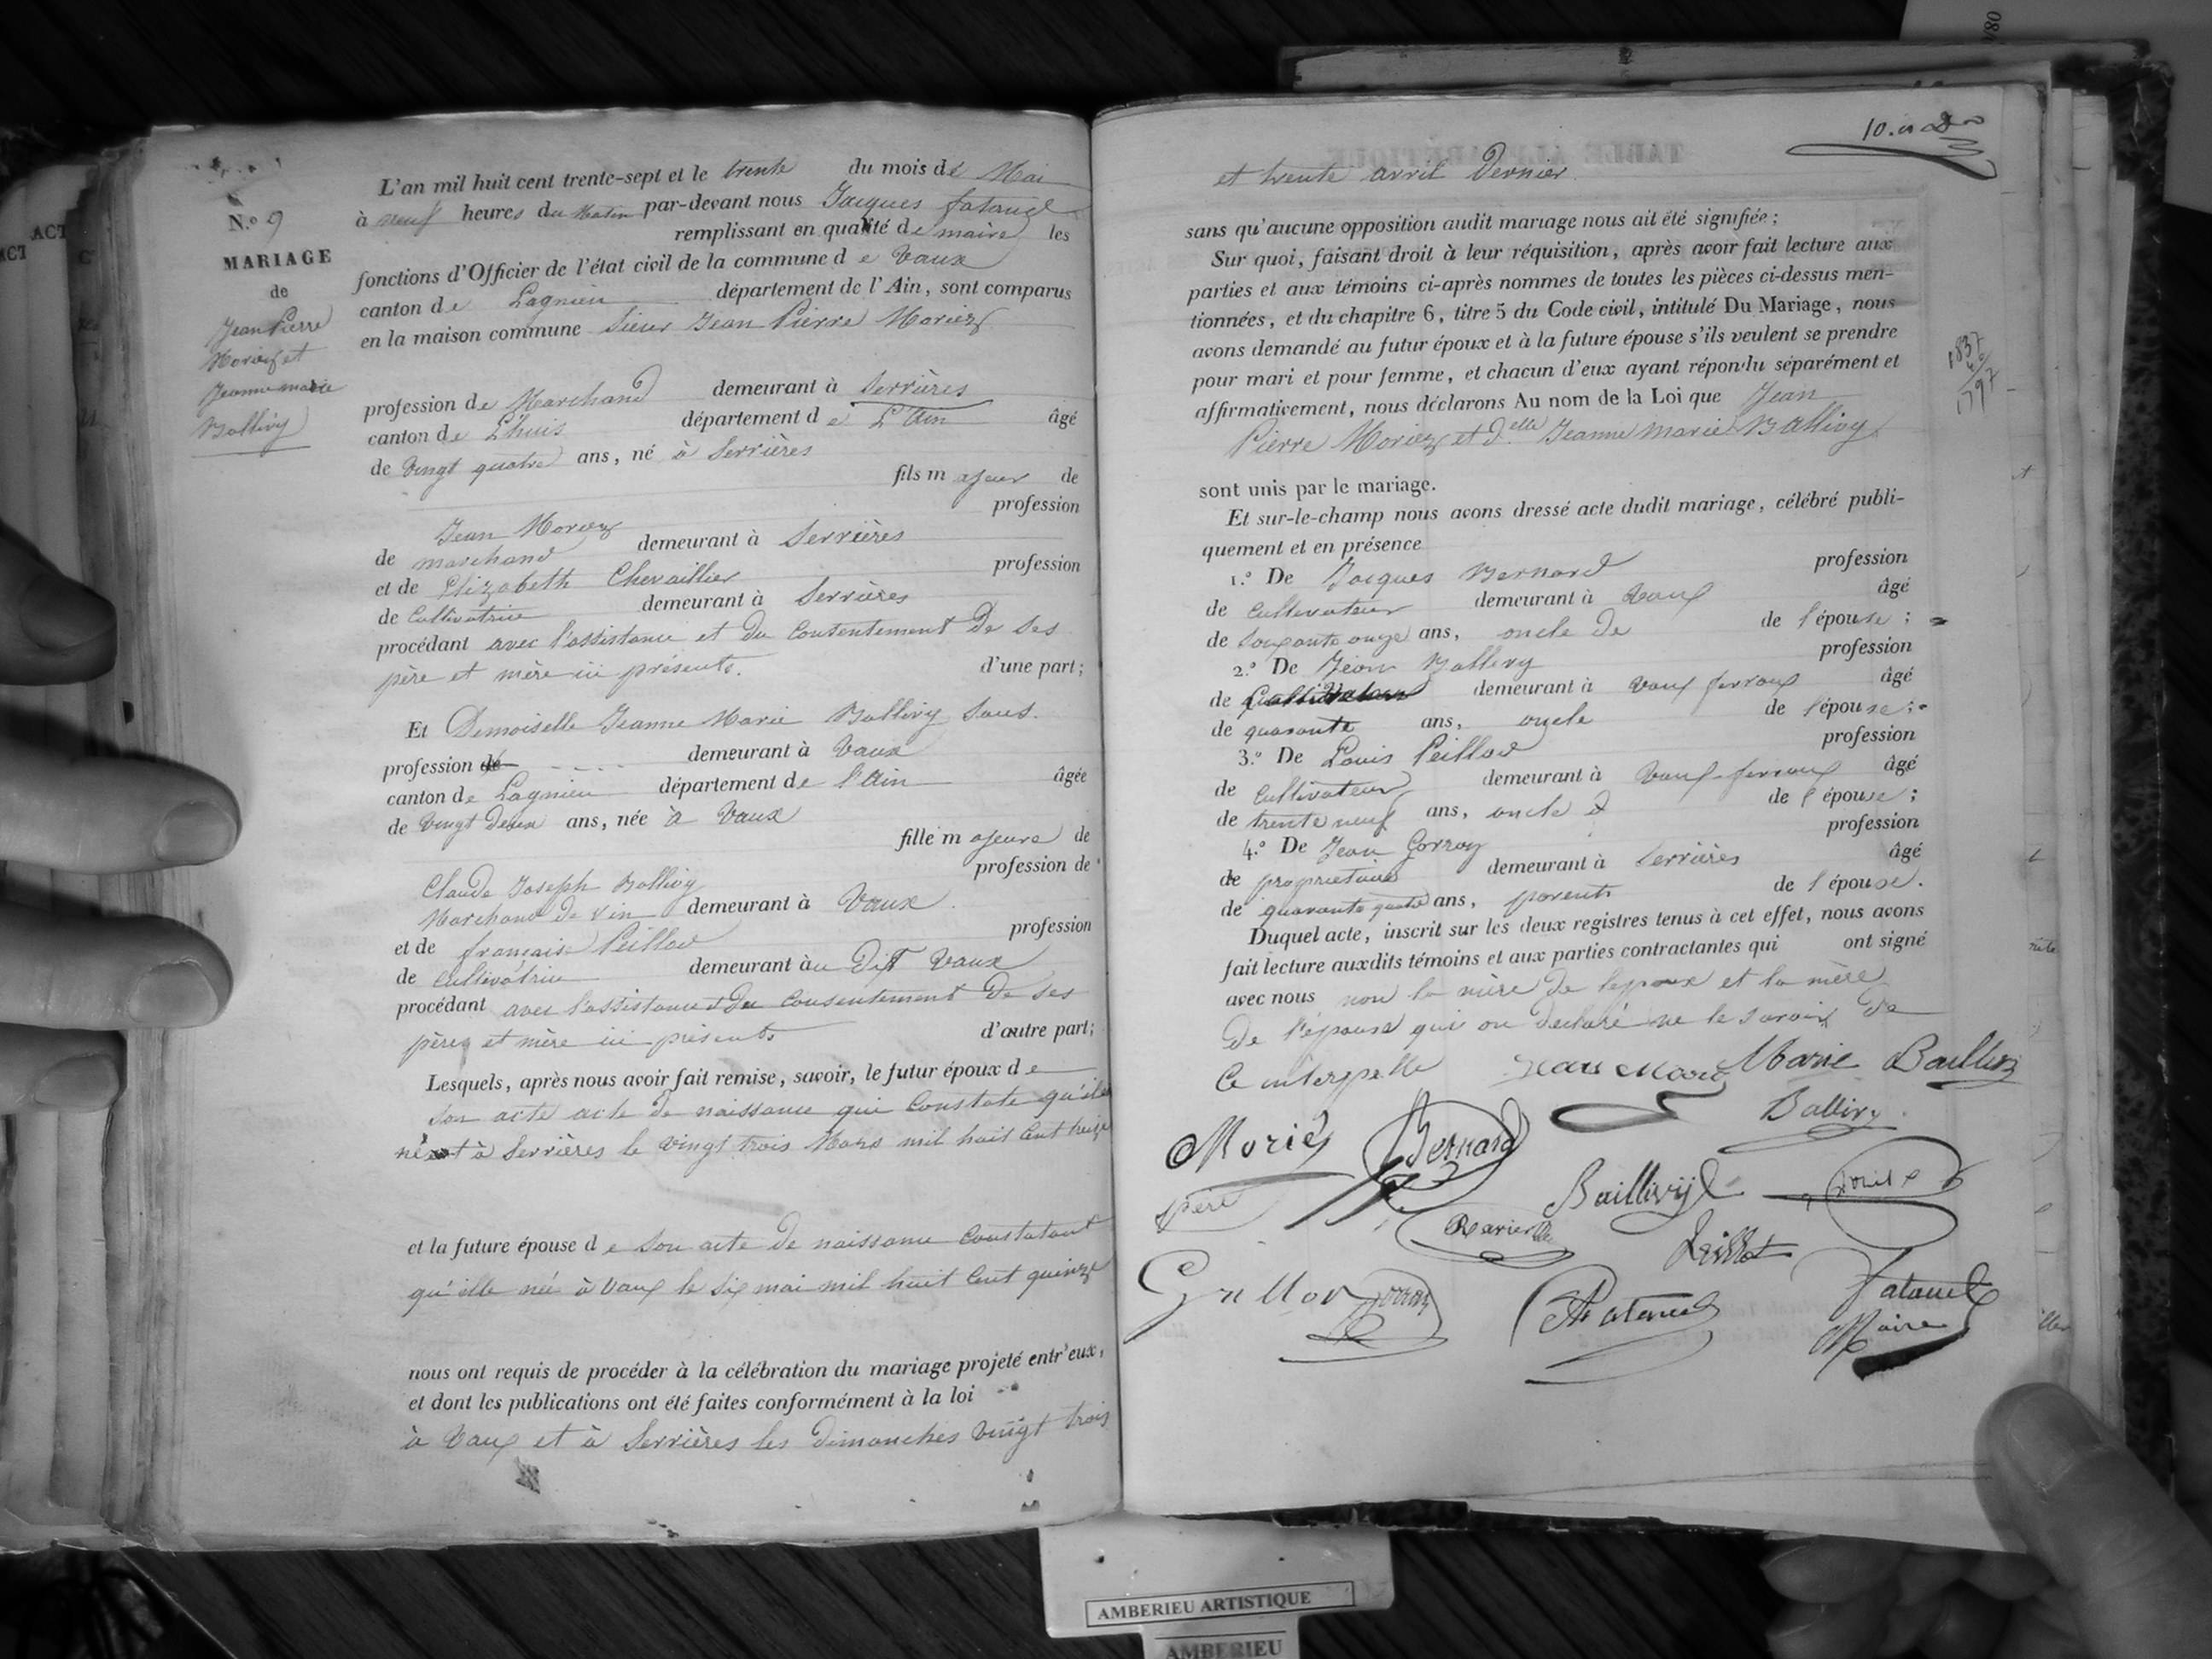 N.º 9
MARIAGE
de
Jean Pierre
Moriez et
Jeanne marie
Ballivy
L'an mil huit cent trente-sept et le trente du mois de Mai
à neuf heures du Matin par-devant nous Jacques fatanel
remplissant en qualité de maire les
fonctions d'Officier de l'état civil de la commune de Vaux
canton de Lagnieu département de l'Ain, sont comparus
en la maison commune Sieur Jean Pierre Moriez
profession de Marchand demeurant à Serrières
canton de Lhuis département de L'Ain âgé
de vingt quatre ans, né à Serrières
fils majeur de
profession
Jean Moriez
de marchand demeurant à Serrières
et de Elizabeth Chevaillier profession
de Cultivatrice demeurant à Serrières
procédant avec l'assistance et du Contentement De ses
père et mère ici présents. d'une part;
Et Demoiselle Jeanne Marie Ballivy Sans
profession de demeurant à Vaux
canton de Lagnieu département de l'Ain âgée
de vingt deux ans, née à Vaux
fille majeure de
profession de
Claude Joseph Ballivy
Marchand de vin demeurant à Vaux
et de françoise Peillod profession
de cultivatrice demeurant au Dit Vaux
procédant avec l'assistance et du Consentement De ses
père et mère ici présents d'autre part;
Lesquels, après nous avoir fait remise, savoir, le futur époux de
son acte acte de naissance qui Constate qu'il
né à Serrières le vingt trois Mars mil huit Cent treize
et la future épouse de son acte de naissance Constatant
qu'elle née à Vaux le six mai mil huit Cent quinze
nous ont requis de procéder à la célébration du mariage projeté entr'eux,
et dont les publications ont été faites conformément à la loi
à Vaux et à Serrières les dimanches vingt trois
et trente avril Dernier
sans qu'aucune opposition audit mariage nous ait été signifiée;
Sur quoi, faisant droit à leur réquisition, après avoir fait lecture aux
parties et aux témoins ci-après nommes de toutes les pièces ci-dessus men-
tionnées, et du chapitre 6, titre 5 du Code civil, intitulé Du Mariage, nous
avons demandé au futur époux et à la future épouse s'ils veulent se prendre
pour mari et pour femme, et chacun d'eux ayant répondu séparément et
affirmativement, nous déclarons Au nom de la Loi que Jean
Pierre Moriez et delle Jeanne Marie Ballivy
sont unis par le mariage.
Et sur-le-champ nous avons dressé acte dudit mariage, célébré publi-
quement et en présence
1.º De Jacques Bernard profession
de cultivateur demeurant à Vaux âgé
de soixante onze ans, oncle de de l'épouse;
2.º De Jean Ballivy profession
de Cultivateur demeurant à Vaux fevroux âgé
de quarante ans, oncle de l'épouse;
3.º De Louis Peillod profession
de Cultivateur demeurant à Vaux fevroux âgé
de trente neuf ans, oncle d de l'épouse;
4.º De Jean Gorroy profession
de propriétaire demeurant à Serrières âgé
de quarante quatre ans, parents de l'épouse.
Duquel acte, inscrit sur les deux registres tenus à cet effet, nous avons
fait lecture auxdits témoins et aux parties contractantes qui ont signé
avec nous non la mère de l'époux et la mère
de l'épouse qui on declaré ne le savoir De
Ce interpelle
Marie Baillivy
Ballivy
Moriés Bernard
père
Baillivy
Peillot
Fatanel
Maire
1837
40
1797
AMBERIEU ARTISTIQUE
AMBERIEU